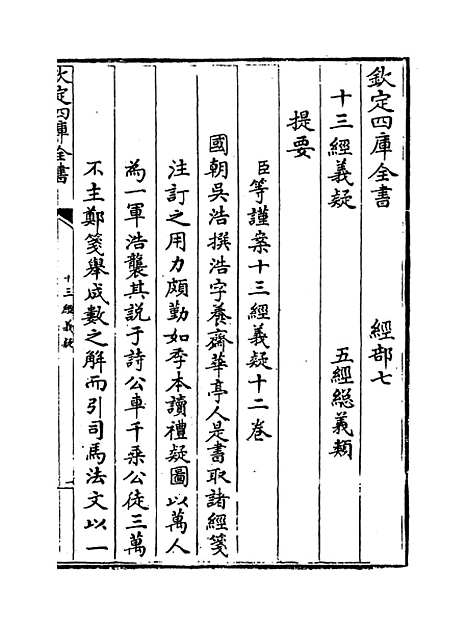 欽定四庫全書 經部七
十三經義疑 五經總義類
提要
臣等謹案十三經義疑十二卷
國朝吳浩撰浩字養齋華亭人是書取諸經箋
注訂之用力頗勤如季本讀禮疑圖以萬人
為一軍浩襲其説于詩公車千乘公徒三萬
不主鄭箋舉成數之解而引司馬法文以一
欽定四庫全書
十三經義疑